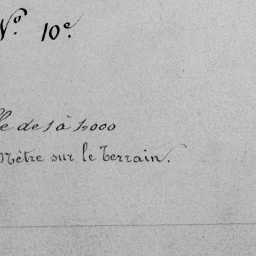 N.º 10.e
de 1 à 5000
Mètre sur le Terrain.